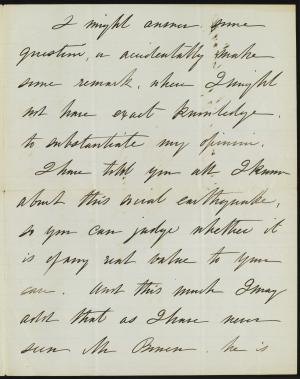 I might answer some
question, or accidentally make
some remark, where I might
not have exact knowledge
to substantiate my opinion.
I have told you all I know
about this social earthquake,
so you can judge whether it
is of any real value to your
case. And this much I may
add that as I have never
seen Mr Brown. he is